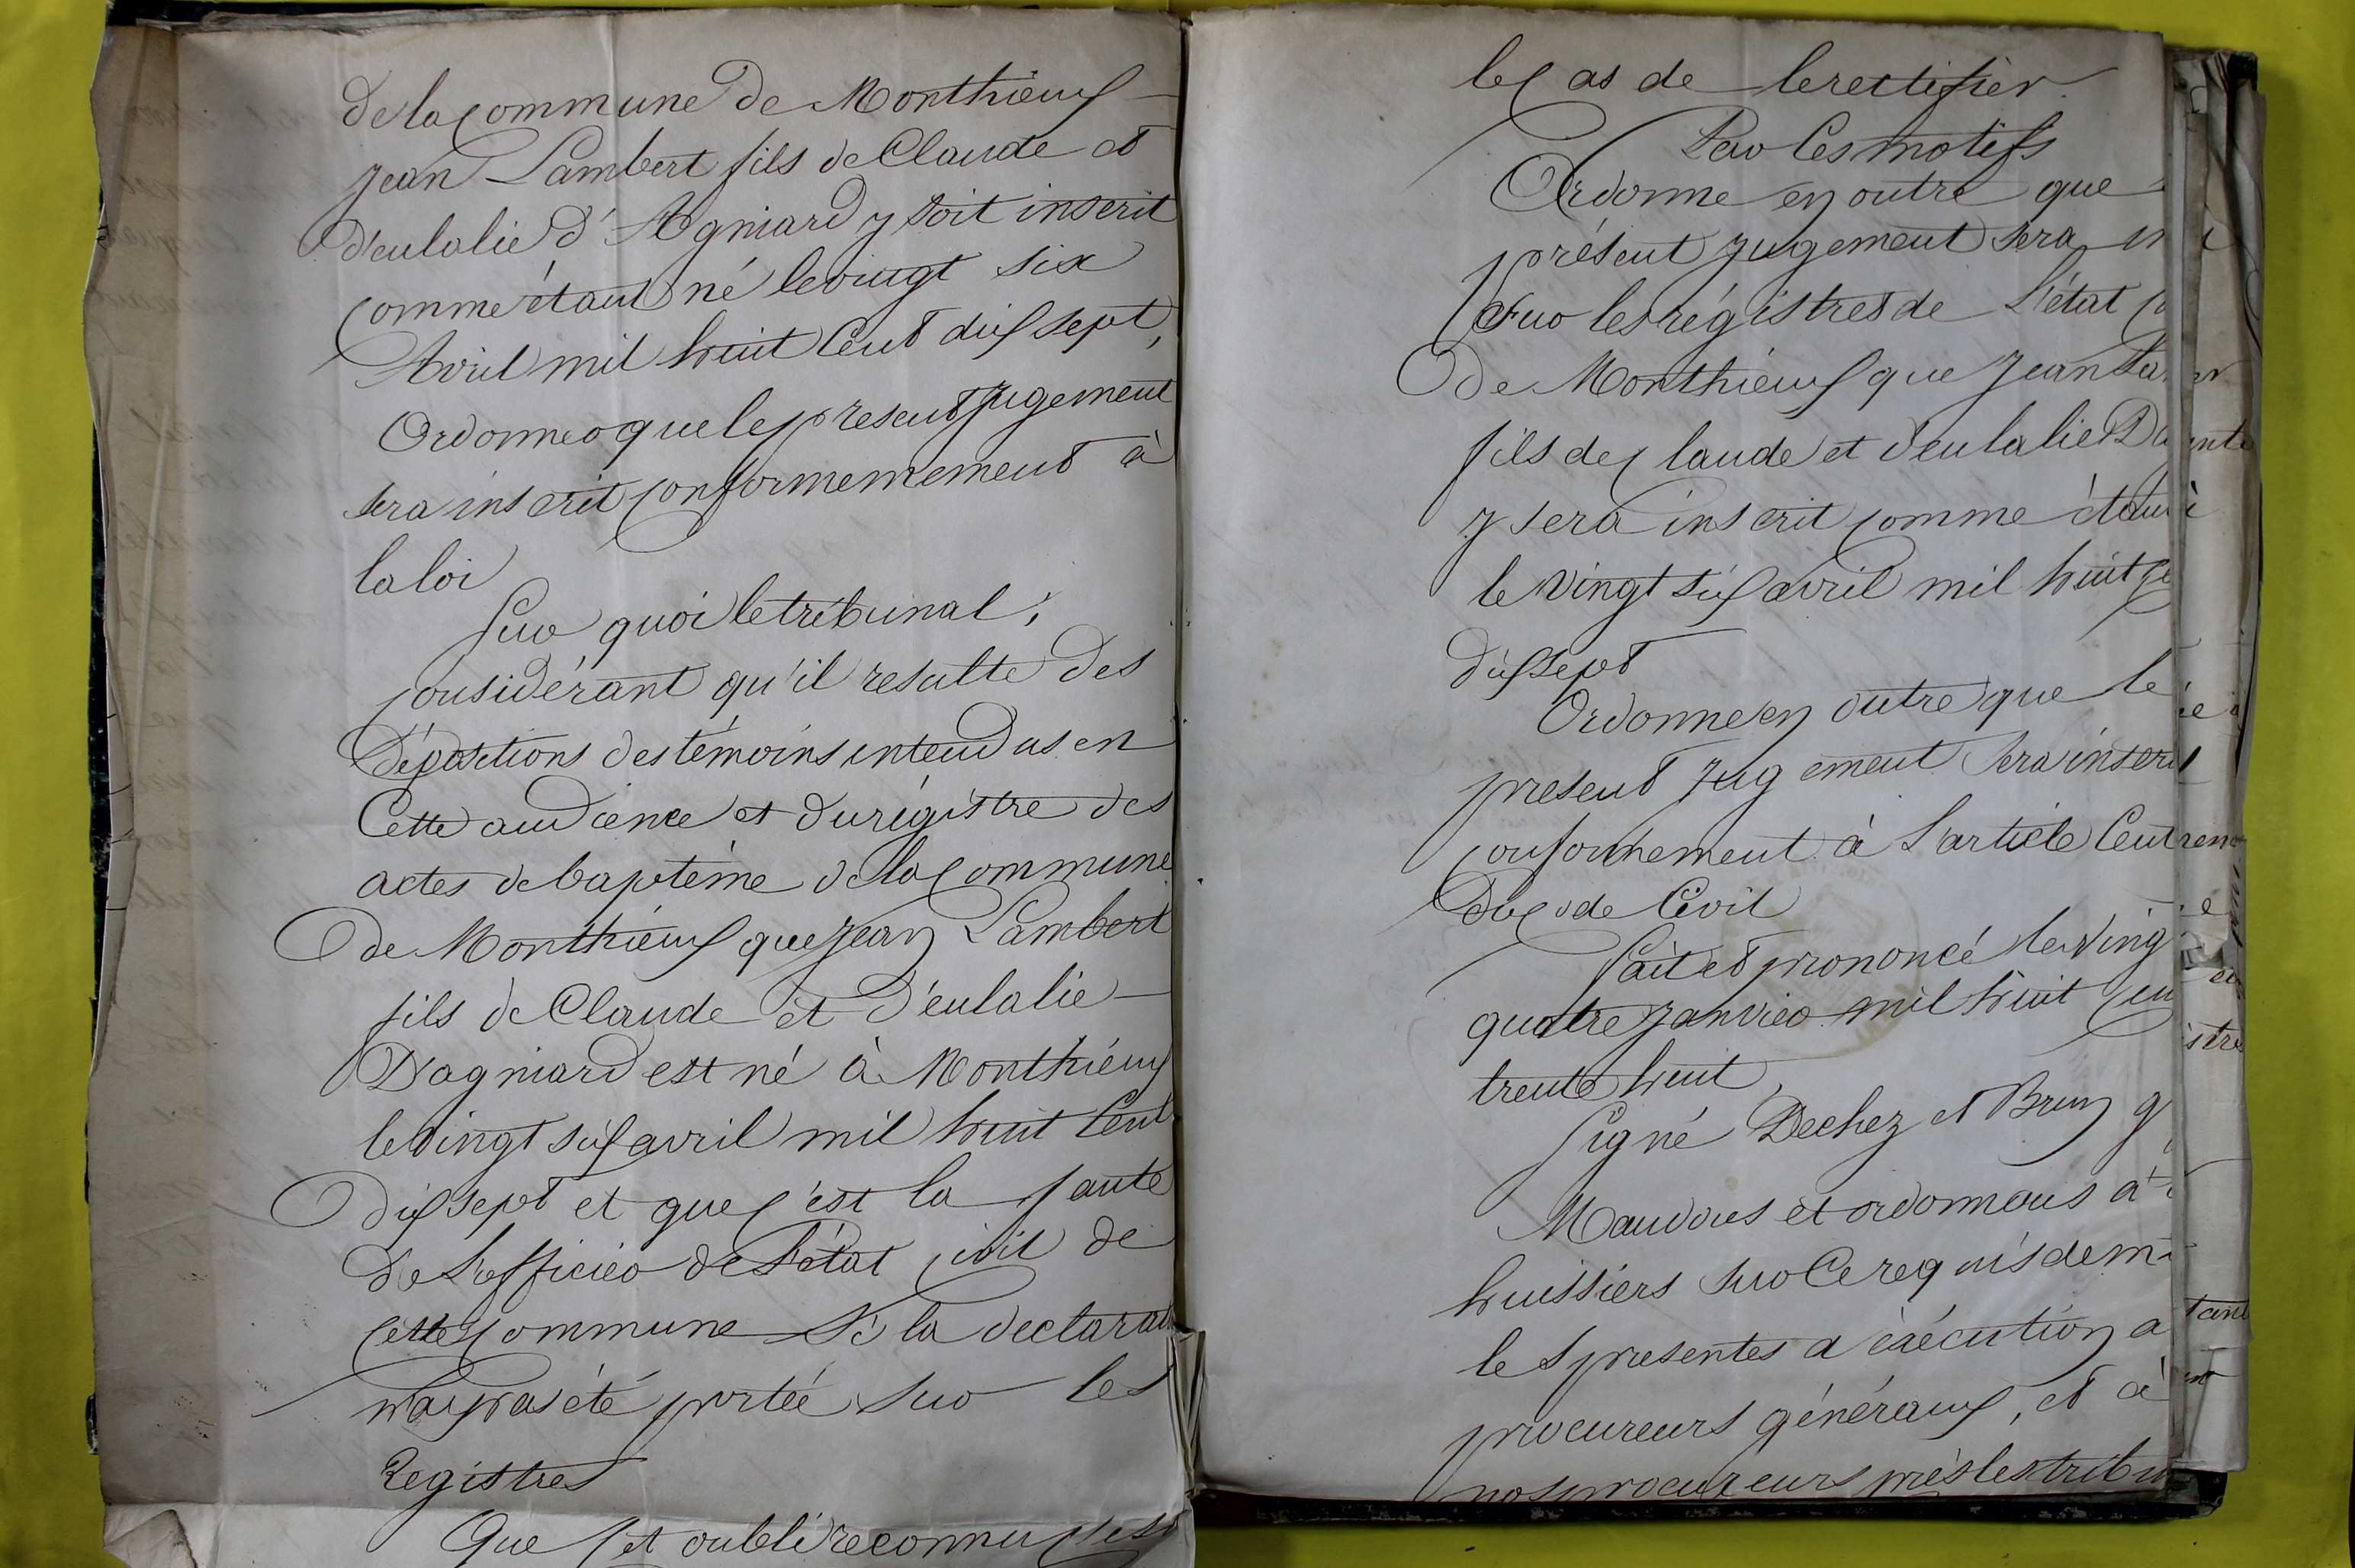 de la commune de Monthieux
jean Lambert fils de Claude et
d'eulalie d'Agniard y soit inscrit
comme étant né le vingt six
Avril mil huit Cent dix sept,
Ordonner que le present jugement
sera inscrit conformemement à
la loi
Sur quoi le tribunal,
considérant qu'il resulte des
Dépositions des témoins entendus en
Cette audience et du régistre des
actes de baptême de la commune
de Monthieux que jean Lambert
fils de Claude et d'eulalie
Dagniard est né à Monthieux
le vingt six avril mil huit Cent
dix sept et que c'est la faute
de l'officier de l'état civil de
cette commune si la declarat
n'a pas été portée sur les
Registres
Que cet oubli reconnu c'est
le cas de le rectifier
Par Ces motifs
Ordonne en outre que
présent jugement sera
Sur les régistres de L'état
de Monthieux que jean La
fils de claude et d'eulalie Da
y sera inscrit comme étant
le vingt six avril mil huit ce
dix sept
Ordonne en outre que le
present jugement sera inscrit
conformement à L'article Cent
du code Civil
fait et prononcé le Ving
quatre janvier mil huit cen
trente huit,
Signé Dechez et Brun g
Mandons et ordonnons à
huissiers sur Ce requis de m
les presentes a exécution a
procureurs généraux, et à
nos procureurs près les tribu